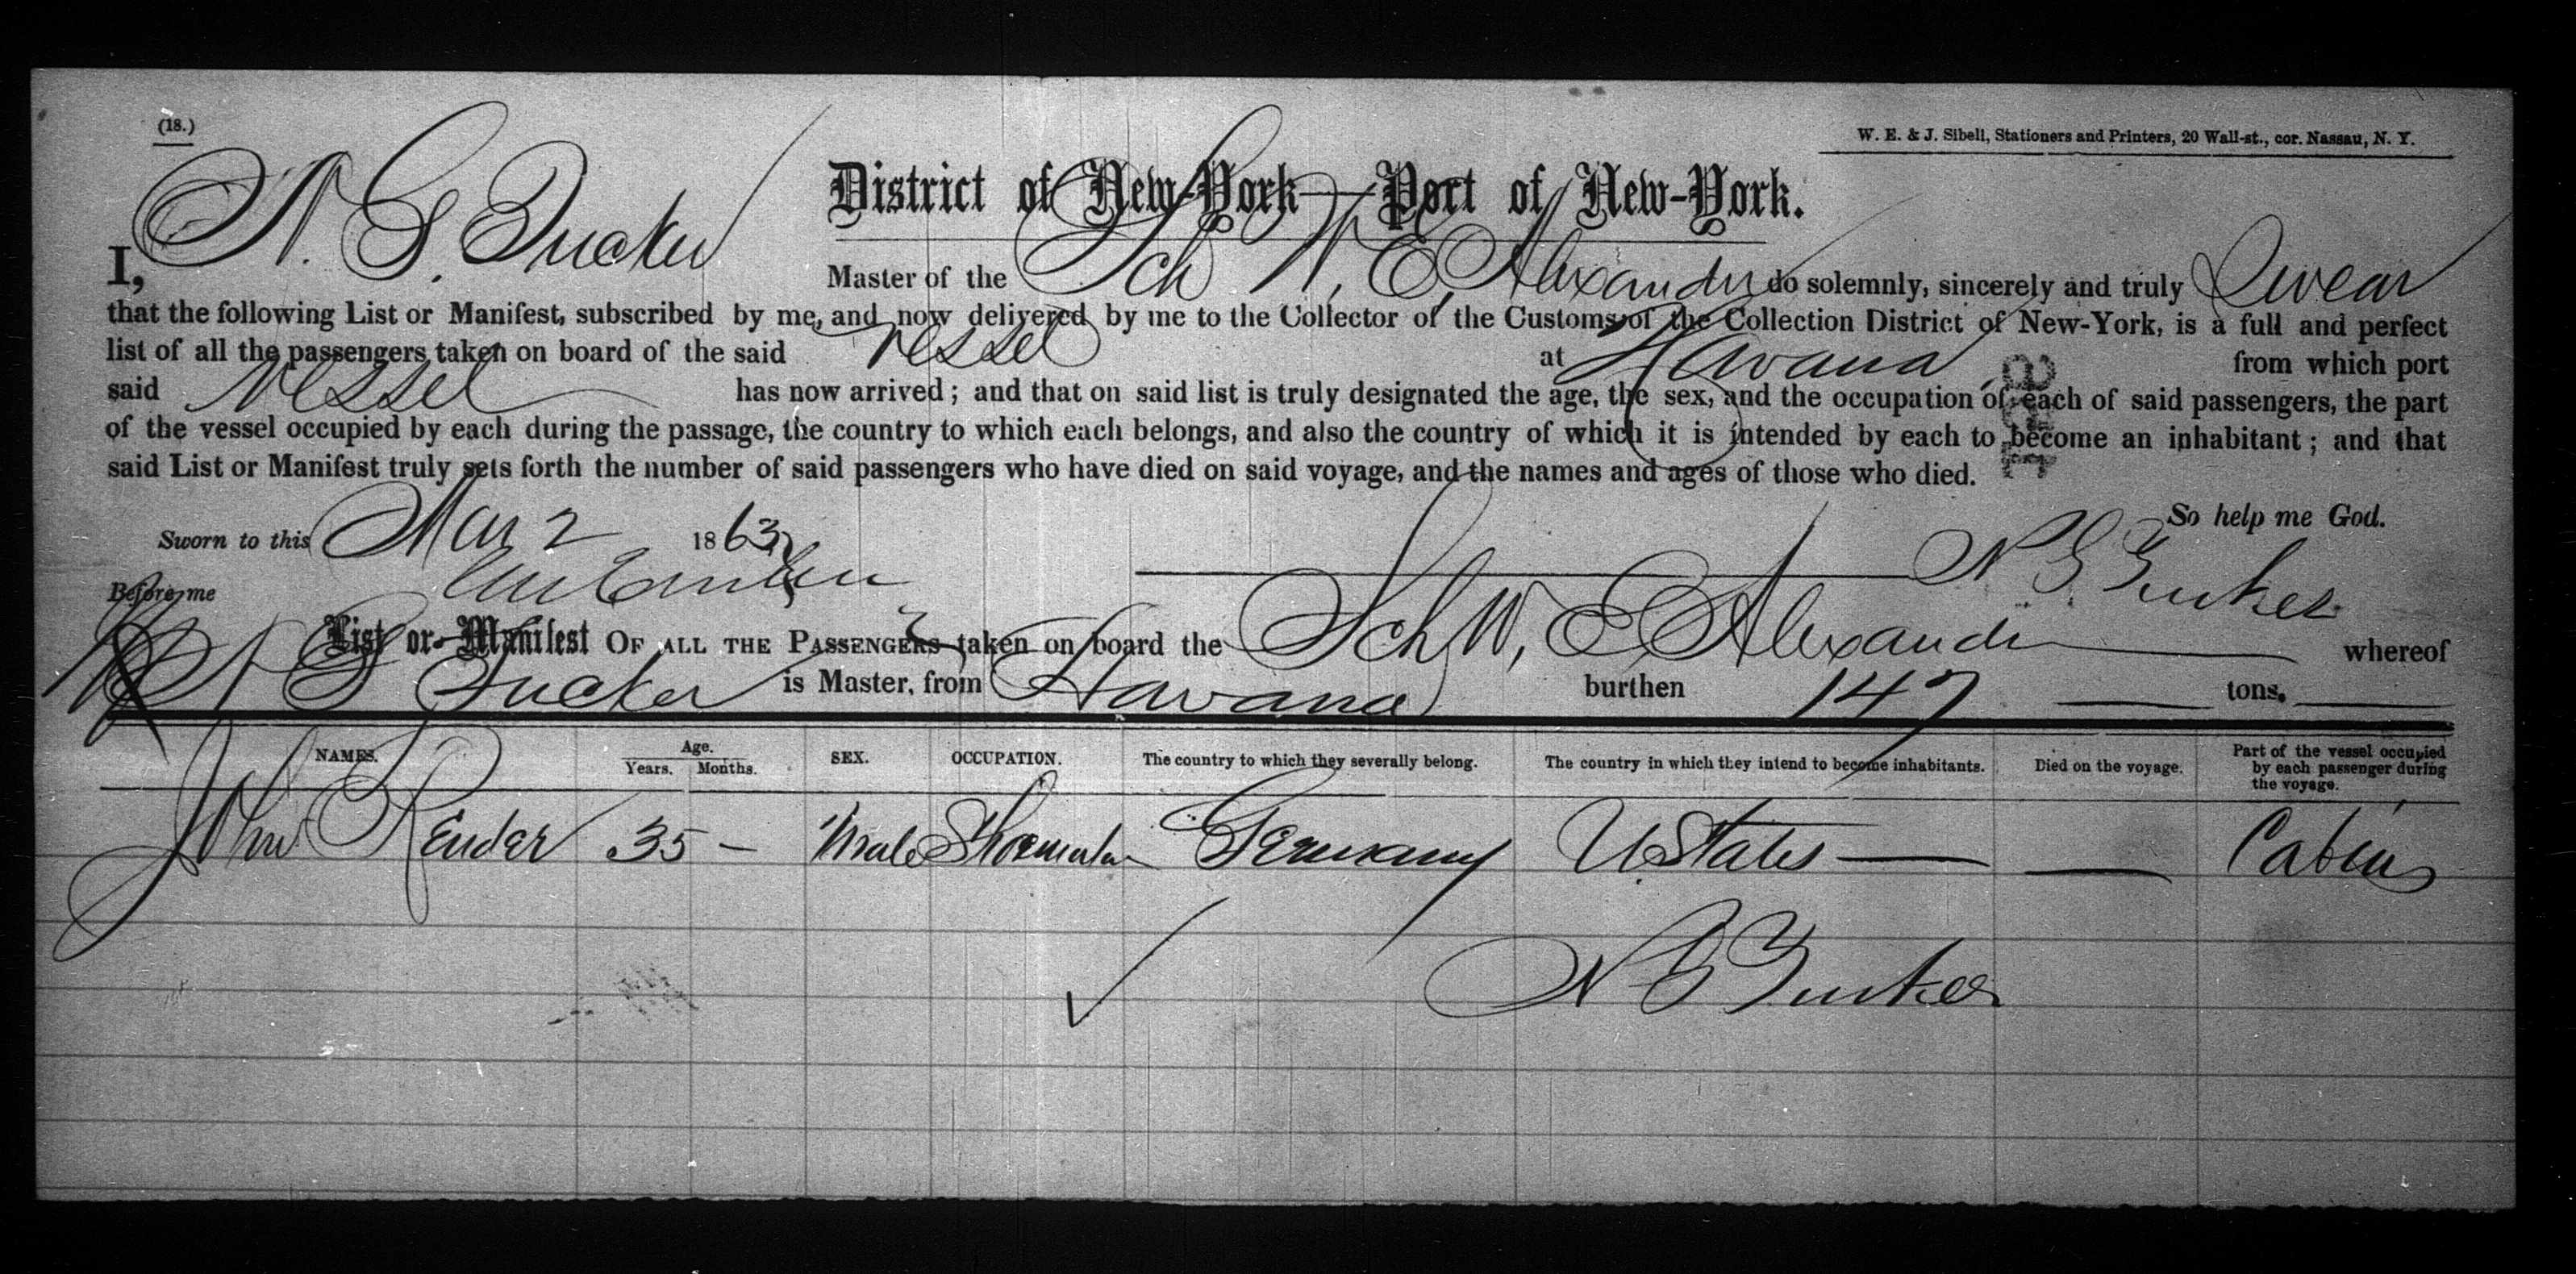 (18.)
W. E. & J. Sibell, Stationers and Printers, 20 Wall-st., cor. Nassau, N. Y.
District of New-York—Port of New-York.
I, N. G. Tucker Master of the Sch W. E. Alexander do solemnly, sincerely and truly Swear
that the following List or Manifest, subscribed by me, and now delivered by me to the Collector of the Customs of the Collection District of New-York, is a full and perfect
list of all the passengers taken on board of the said Vessel at Havana from which port
said Vessel has now arrived; and that on said list is truly designated the age, the sex, and the occupation of each of said passengers, the part
of the vessel occupied by each during the passage, the country to which each belongs, and also the country of which it is intended by each to become an inhabitant; and that
said List or Manifest truly sets forth the number of said passengers who have died on said voyage, and the names and ages of those who died.
So help me God.
Sworn to this Mar 2 1863
Before me
N G Tucker
List or Manifest OF ALL THE PASSENGERS taken on board the Sch W. E Alexander whereof
N G Tucker is Master, from Havana burthen 147 tons.
NAMES. Age. Years. Months. SEX. OCCUPATION. The country to which they severally belong. The country in which they intend to become inhabitants. Died on the voyage. Part of the vessel occupied by each passenger during the voyage.
John Render 35 – Male Shoemaker Germany U States — — Cabin
N G Tucker